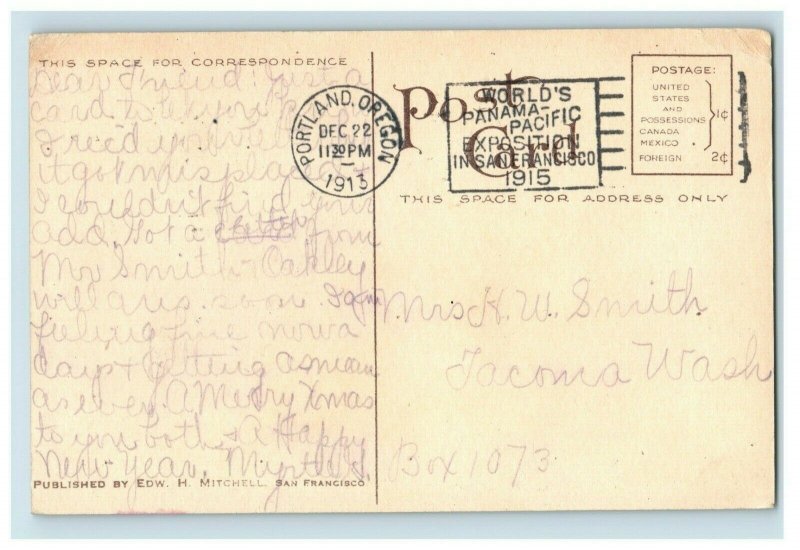 THIS SPACE FOR CORRESPONDENCE
Dear Friend: Just a
card to let you know
I rec'd your
it got misplaced &
I couldn't find your
add. Got a card letter from
Mr Smith & Oakley
will ans. soon. I am
feeling fine now a
days & getting as mean
as ever. A Merry Xmas
to you both & A Happy
New Year. Myrtle S.
PUBLISHED BY EDW. H. MITCHELL, SAN FRANCISCO
PORTLAND, OREGON
DEC 22
11 30 PM
1913
Post Card
WORLD'S
PANAMA-
PACIFIC
EXPOSITION
IN SAN FRANCISCO
1915
POSTAGE:
UNITED
STATES
AND
POSSESSIONS
CANADA
MEXICO
1¢
FOREIGN 2¢
THIS SPACE FOR ADDRESS ONLY
Mrs H. W. Smith
Tacoma Wash
Box 1073